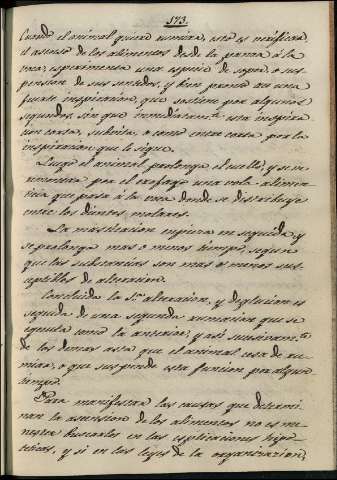 173.
Cuando el animal quiere rumiar, esto es verificar
el ascenso de los alimentos desde la panza á la
boca, esperimenta una especie de sopor, o sus-
pension de sus sentidos, y bien pronto hace una
fuerte inspiracion, que sostiene por algunos
segundos sin que inmediatam.te esta inspira-
cion corta, subita, o como entre cortar por la
inspiracion que le sigue.
Luego el animal prolonga el cuello, y se re-
monta por el exofago una bola alimen-
ticia que pasa á la boca donde se distribuye
entre los dientes molares.
La masticacion empieza en seguida, y
se prolonga mas o menos tiempo, segun
que las substancias son mas o menos sus-
ceptibles de alteracion.
Concluida la 1.a alteracion, y deglucion es
seguida de una segunda rumiacion que se
egecuta como la anterior, y asi sucesivam.te
de las demas asta que el animal cesa de ru-
miar, o que suspende esta funcion por algun
tiempo.
Para manifestar las causas que determi-
nan la ascension de los alimentos no es me-
nester buscarlas en las esplicaciones hipo-
teticas, y si en las leyes de la organizacion,